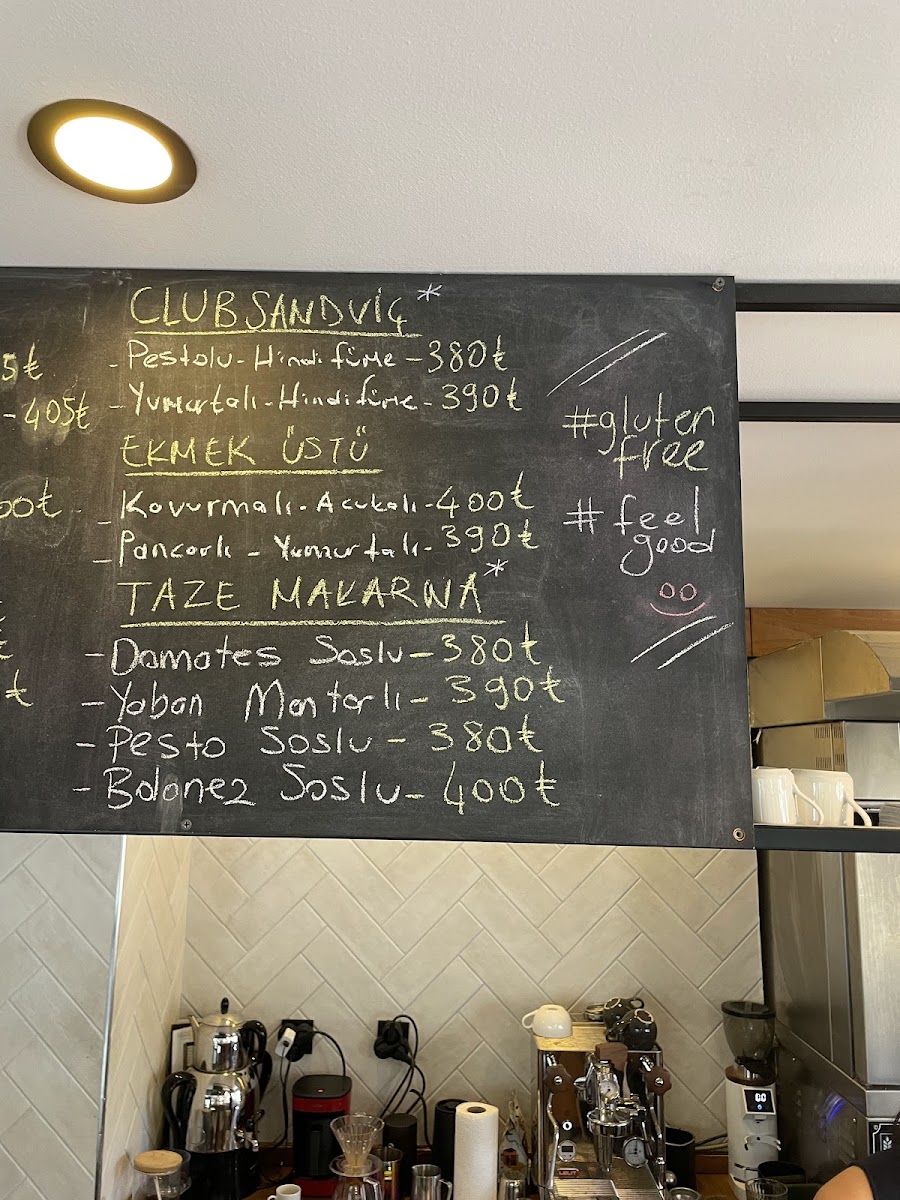 CLUB SANDVİÇ*
5₺
-Pestolu-Hindi füme-380₺
-405₺
-Yumurtalı-Hindi füme-390₺
EKMEK ÜSTÜ
00₺
-Kavurmalı-Acukalı-400₺
-Pancarlı-Yumurtalı-390₺
TAZE MAKARNA*
-Domates Soslu-380₺
₺
-Yaban Mantarlı-390₺
-Pesto Soslu-380₺
-Bolonez Soslu-400₺
#gluten
free
#feel
good
00